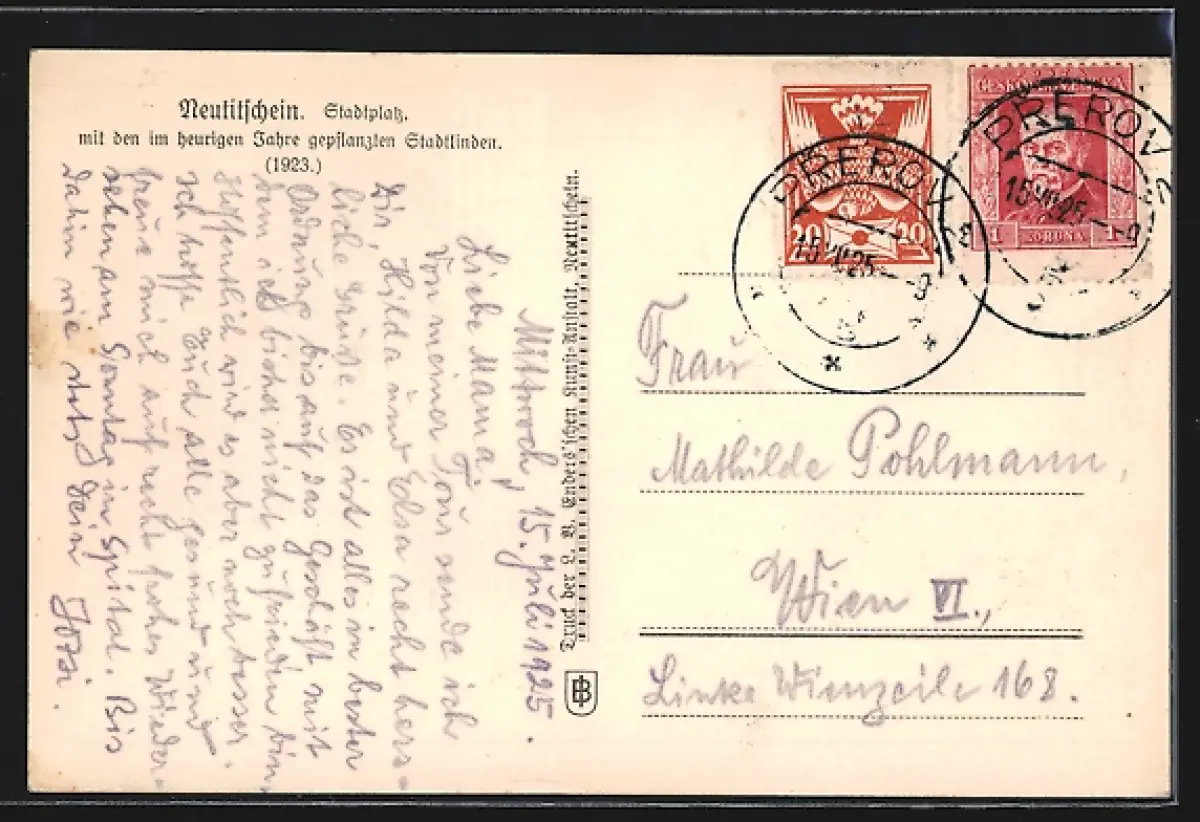 Neutitschein. Stadtplatz.
mit den im heurigen Jahre gepflanzten Stadtlinden.
(1923.)
Mittwoch, 15. Juli 1925.
Liebe Mama!
Von meiner Tour sende ich
Dir, Hilda und Elsa recht herz-
liche Grüße. Es ist alles in bester
Ordnung bis auf das Geschäft mit
dem ich bisher nicht zufrieden bin,
Hoffentlich wird es aber noch besser.
Ich hoffe Euch alle gesund und
freue mich auf recht frohes Wieder-
sehen am Sonntag in Spital. Bis
dahin wie stets Dein Jossi.
Druck der L. V. Enders'schen Kunst-Anstalt, Neutitschein.
EB
ČESKOSLOVENSKÁ
20 20
1 KORUNA 1
PŘEROV 2
15.VII.25
PŘEROV 2
15.VII.25
Frau
Mathilde Pohlmann,
Wien VI.,
Linke Wienzeile 168.